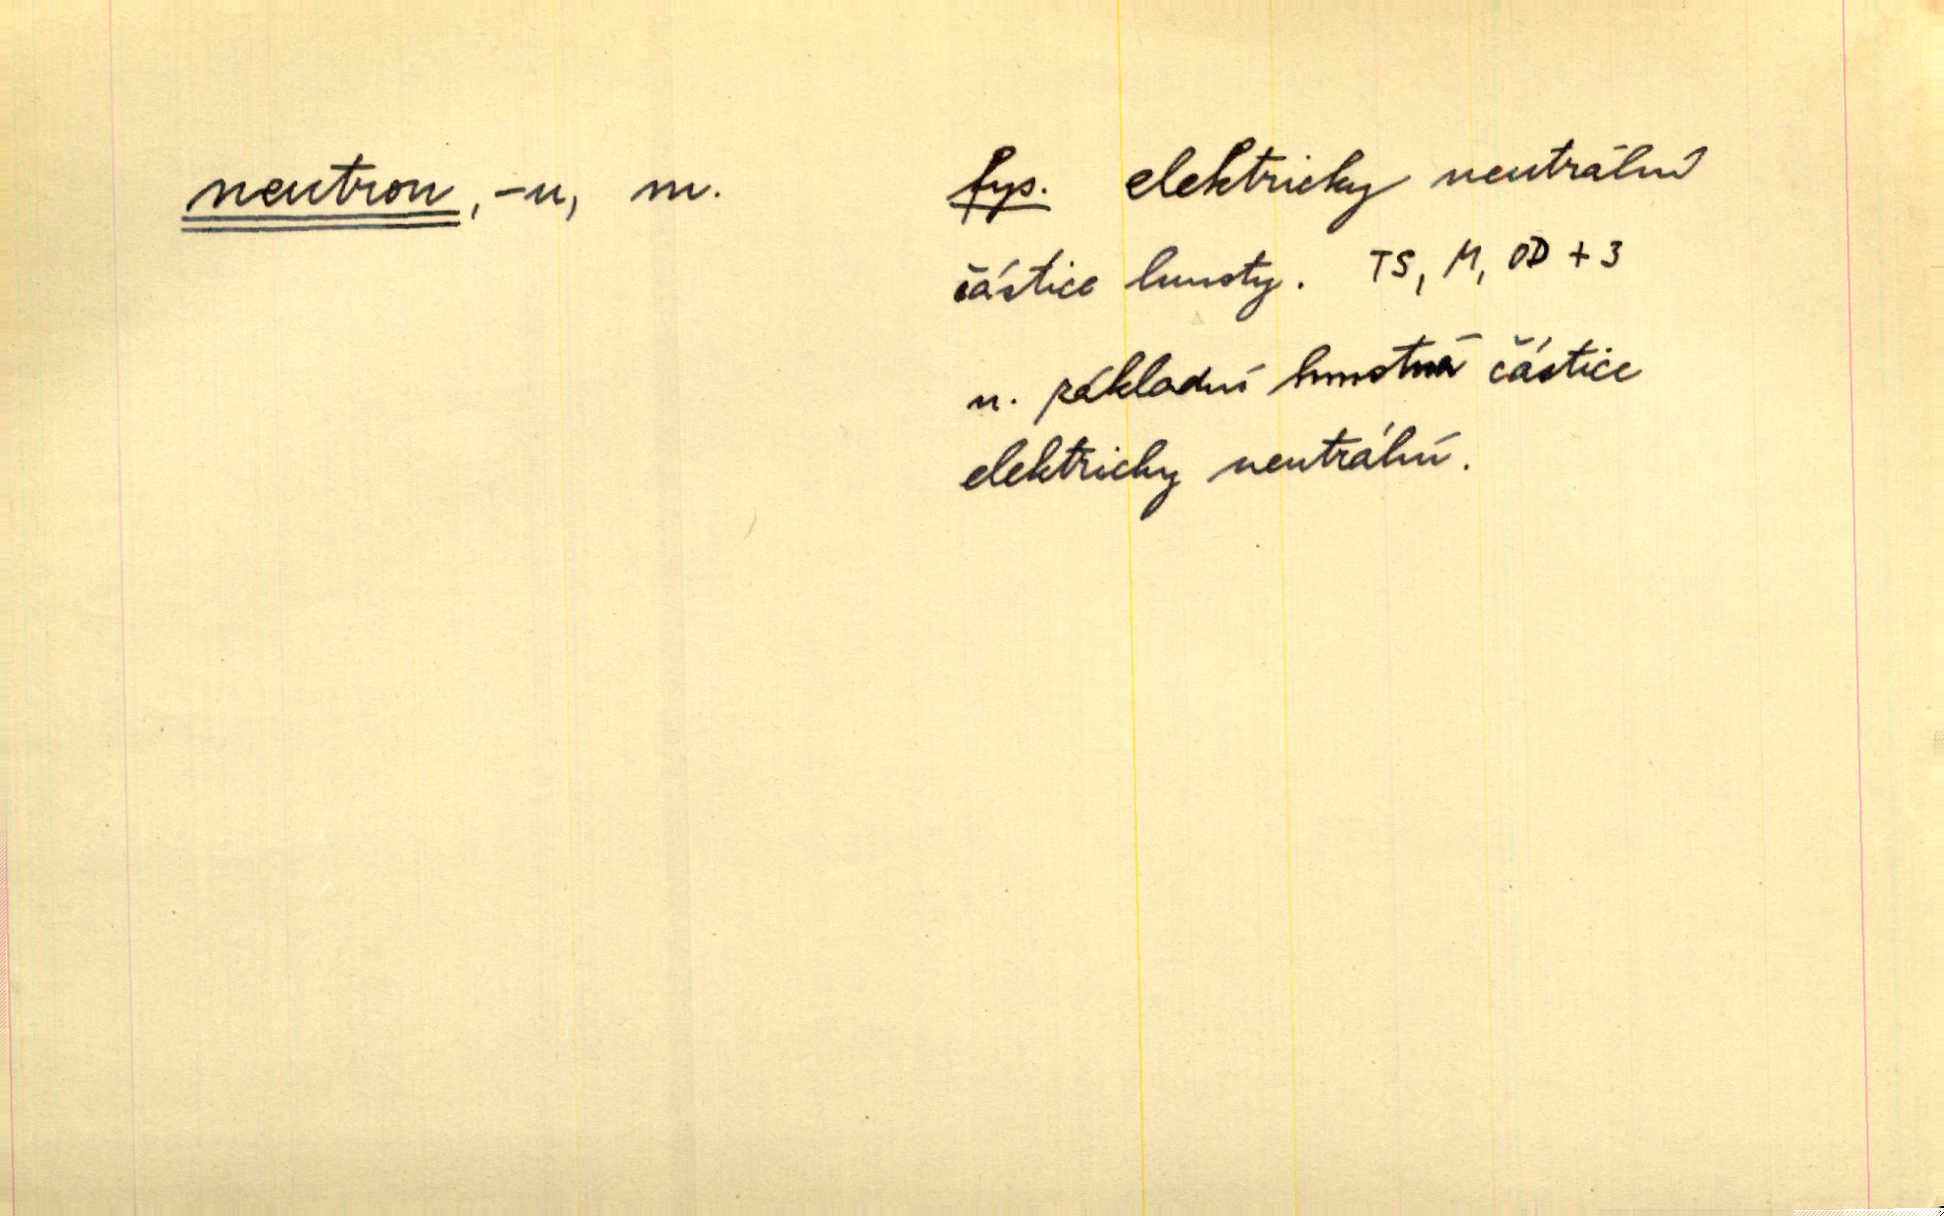 neutron, -u, m.
fys. elektricky neutrální
částice hmoty. TS, M, OD + 3
n. základní hmotná částice
elektricky neutrální.